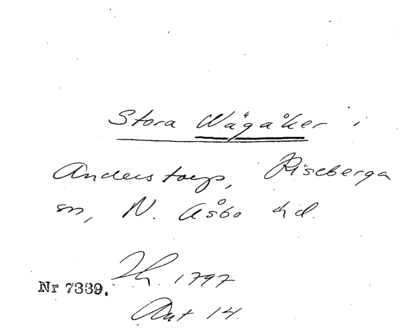 Stora Wågåker i
Anderstorp, Riseberga
sn, N. Åsbo hd.
Nr 7339.
1797
Akt 14.